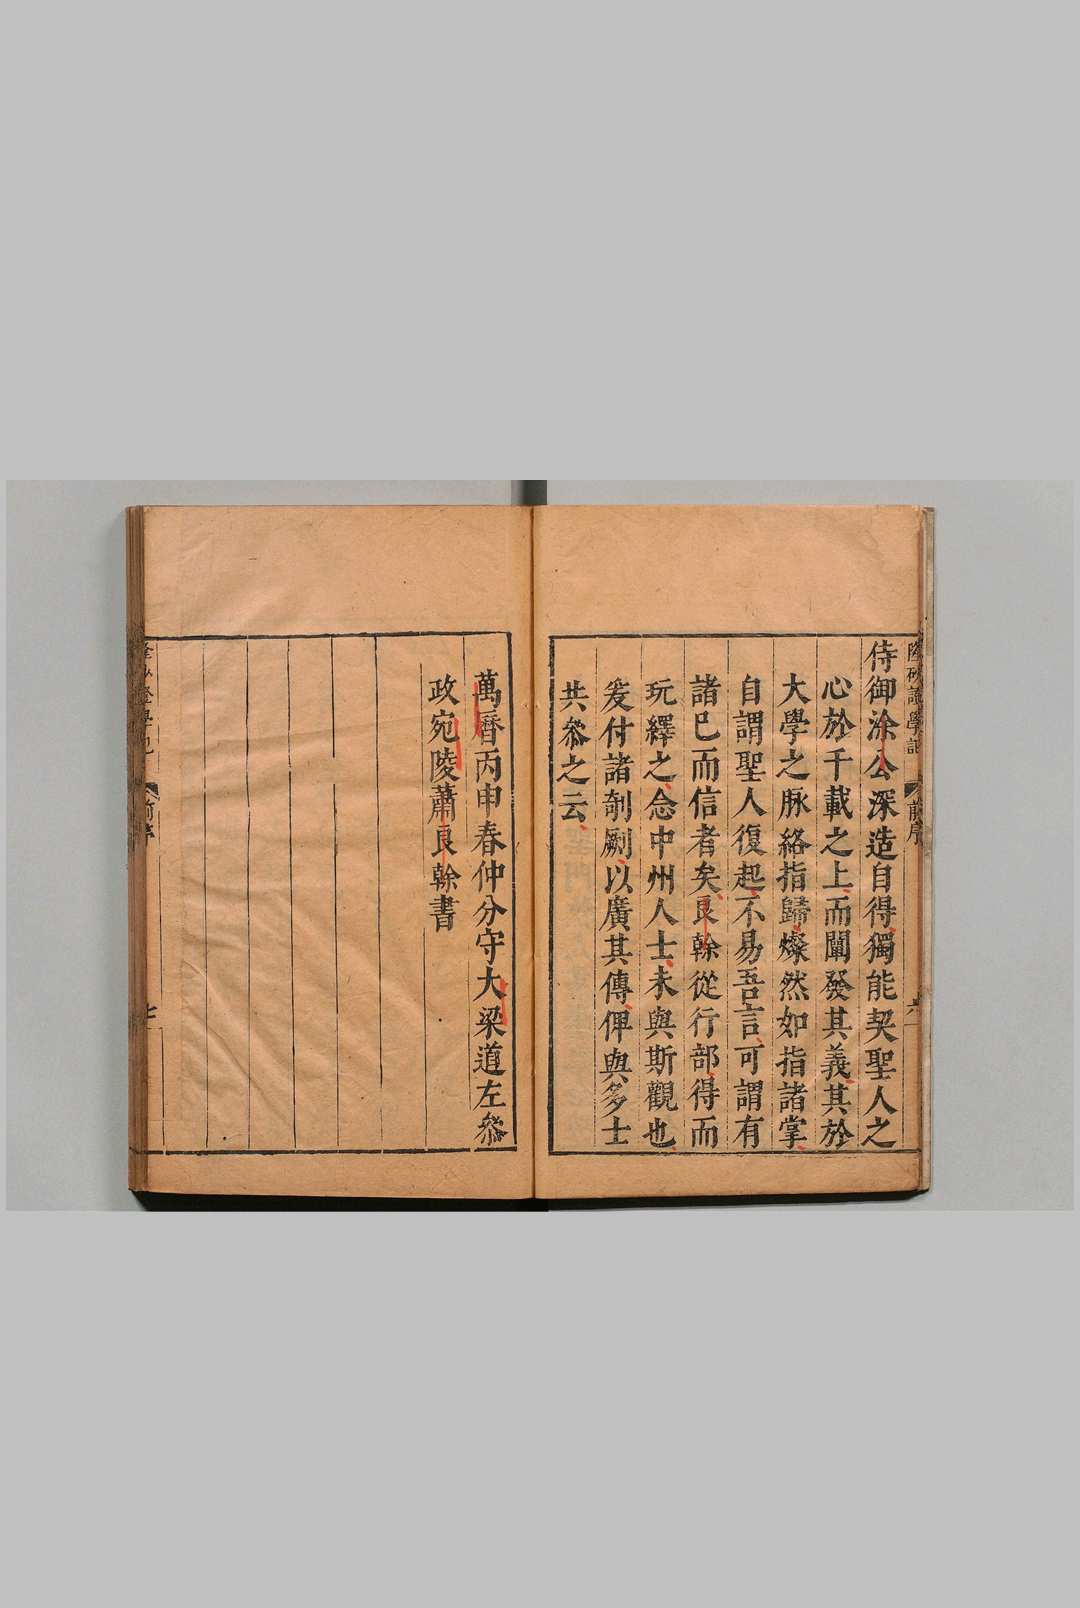 侍御涂公深造自得獨能契聖人之
心於千載之上而闡發其義其於
大學之脉絡指歸燦然如指諸掌
自謂聖人復起不易吾言可謂有
諸巳而信者矣良榦從行部得而
玩繹之念中州人士未與斯觀也
爰付諸剞劂以廣其傳俾與多士
共叅之云
前序
六
萬曆丙申春仲分守大梁道左叅
政宛陵蕭良榦書
前序
七